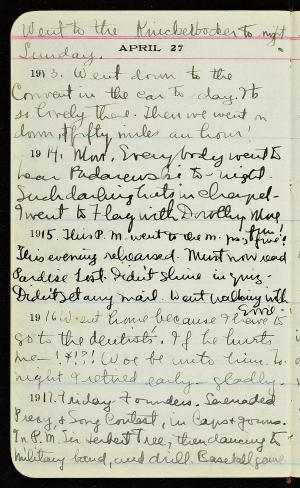 Went to the Knickerbocker to night
Sunday.
APRIL 27
1913. Went down to the
Convent in the car to-day. It
so lovely there. Then we went on
down, fifty miles an hour!
1914. Mon. Everybody went to
hear Paderewski to-night.
Such darling hats in chapel.
I went to Flag with Dorothy Mae
1915. This P.M. went to the m.
This evening rehearsed. Must now read
Paradise Lost. Didn't shine in quiz.
Didn't get any mail. Went walking with
1916 Went home because I have to
go to the dentist's. If he hurts
me—!*!?! Woe be unto him. To
night I retired early - gladly.
1917. Friday. Founders. Serenaded
Prexy, & Song Contest, in Caps & gowns.
In P.M. Sir Herbert Tree, then dancing to
military band, and drill. Baseball game